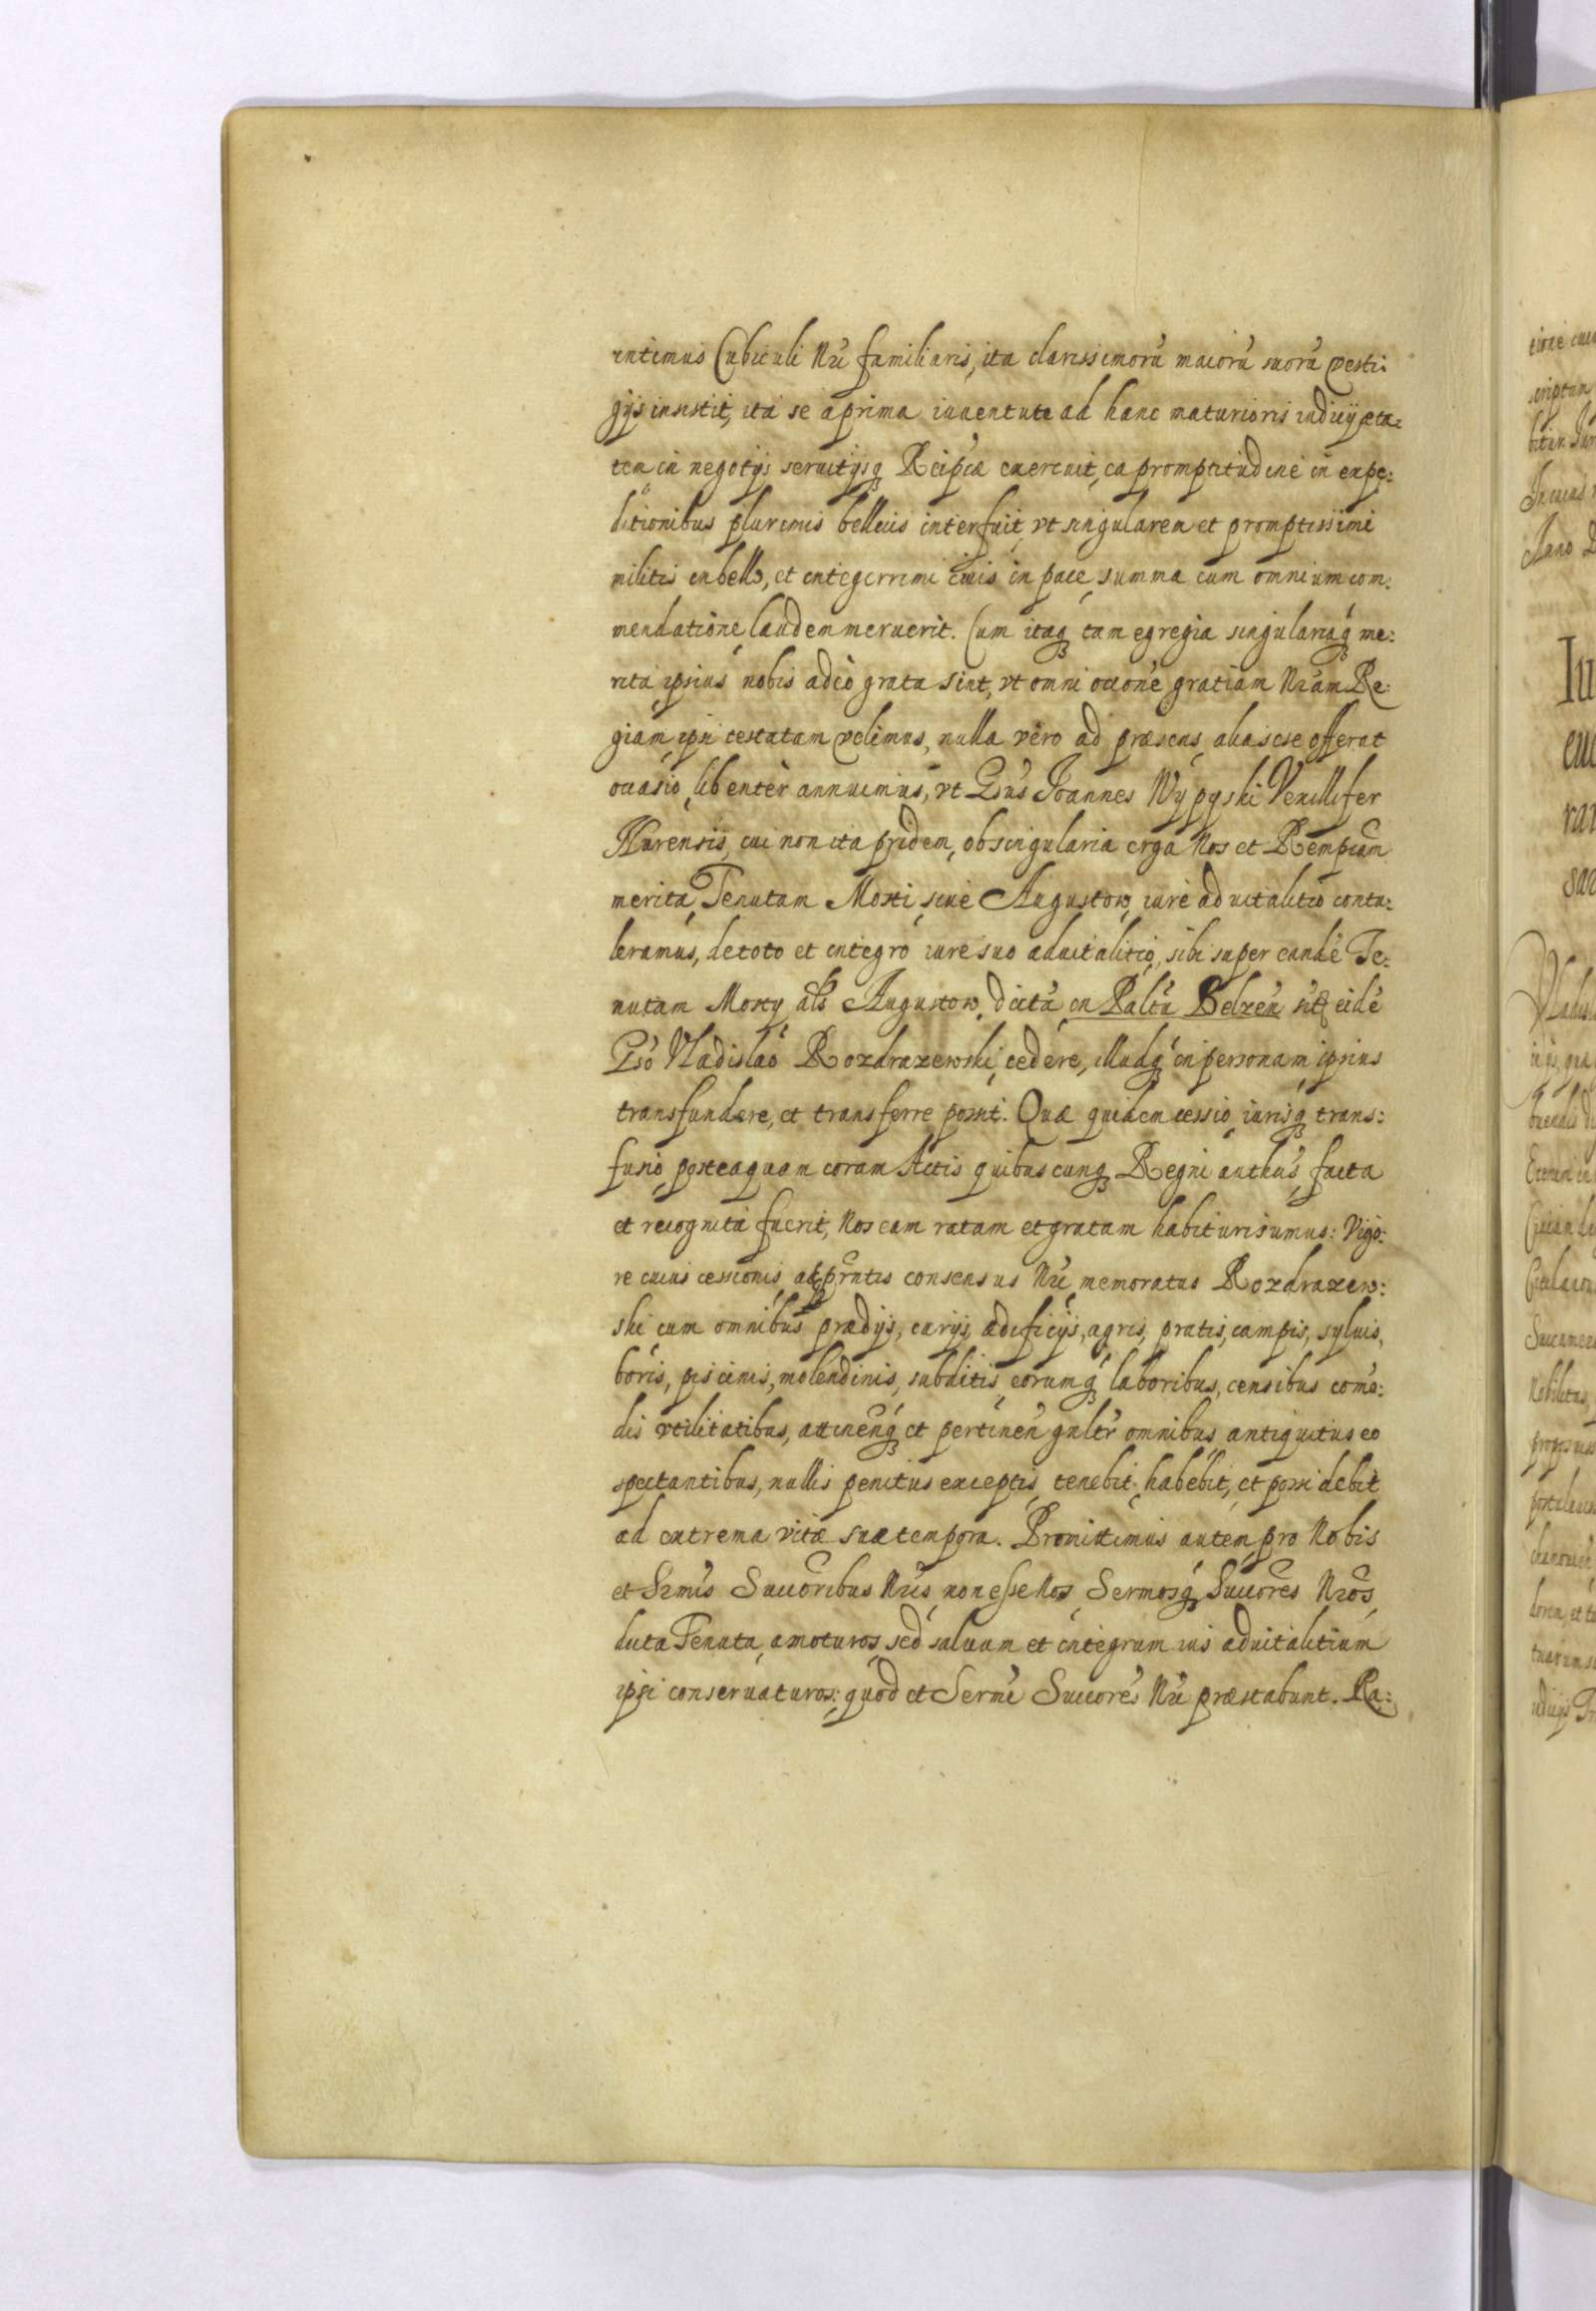 intimus Cubiculi Nri familiaris, ita clarissimorũ maiorũ suorũ vesti:
gijs insistit, ita se a prima iuuentute ad hanc maturioris iudicij æta:
tem in negotijs seruitijsq; Reipcæ exercuit, ea promptitudine in expe:
ditionibus plurimis bellicis interfuit, vt singularem et promptissimi
militis in bello, et integerrimi ciuis in pace, summa cum omnium com:
mendatione, laudem meruerit. Cum itaq; tam egregia singulariaq; me:
rita ipsius nobis adeò grata sint, vt omni occone gratiam Nram Re:
giam ipsi testatam velimus, nulla vero ad præsens alia sese offerat
occasio, libenter annuimus, vt Gsus Joannes Wypyski Vexillifer
Nurensis, cui non ita pridem, ob singularia erga Nos et Rempcam
merita, Tenutam Mosti siue Augustow, iure aduitalitio contu:
leramus, de toto et integro iure suo aduitalitio, sibi super eandẽ Te:
nutam Mosty als Augustow dictã in Paltu Belzeñ eidẽ
Gso Vladislao Rozdrazewski cedere, illudq; in personam ipsius
transfundere, et transferre possit. Quæ quidem cessio, iurisq; trans:
fusio, posteaquam coram Actis quibuscunq; Regni authcis, facta
et recognita fuerit, Nos eam ratam et gratam habituri sumus: Vigo:
re cuius cessionis, atq; prntis consensus Nri, memoratus Rozdrazew:
ski cum omnibus prædijs, curijs, ædificijs, agris, pratis, campis, syluis,
boris, piscinis, molendinis, subditis, eorumq; laboribus, censibus como:
dis vtilitatibus, attineñq; et pertineñ gnltr omnibus, antiquitus eo
spectantibus, nullis penitus exceptis, tenebit, habebit, et possidebit
ad extrema vitæ suæ tempora. Promittimus autem, pro Nobis
et Srmis Succoribus Nris, non esse Nos, Sermosq; Succores Nros,
dicta Tenuta, amoturos, sed saluum et integrum ius aduitalitium
ipsi conseruaturos: quod et Sermi Succores Nri præstabunt. Ra: